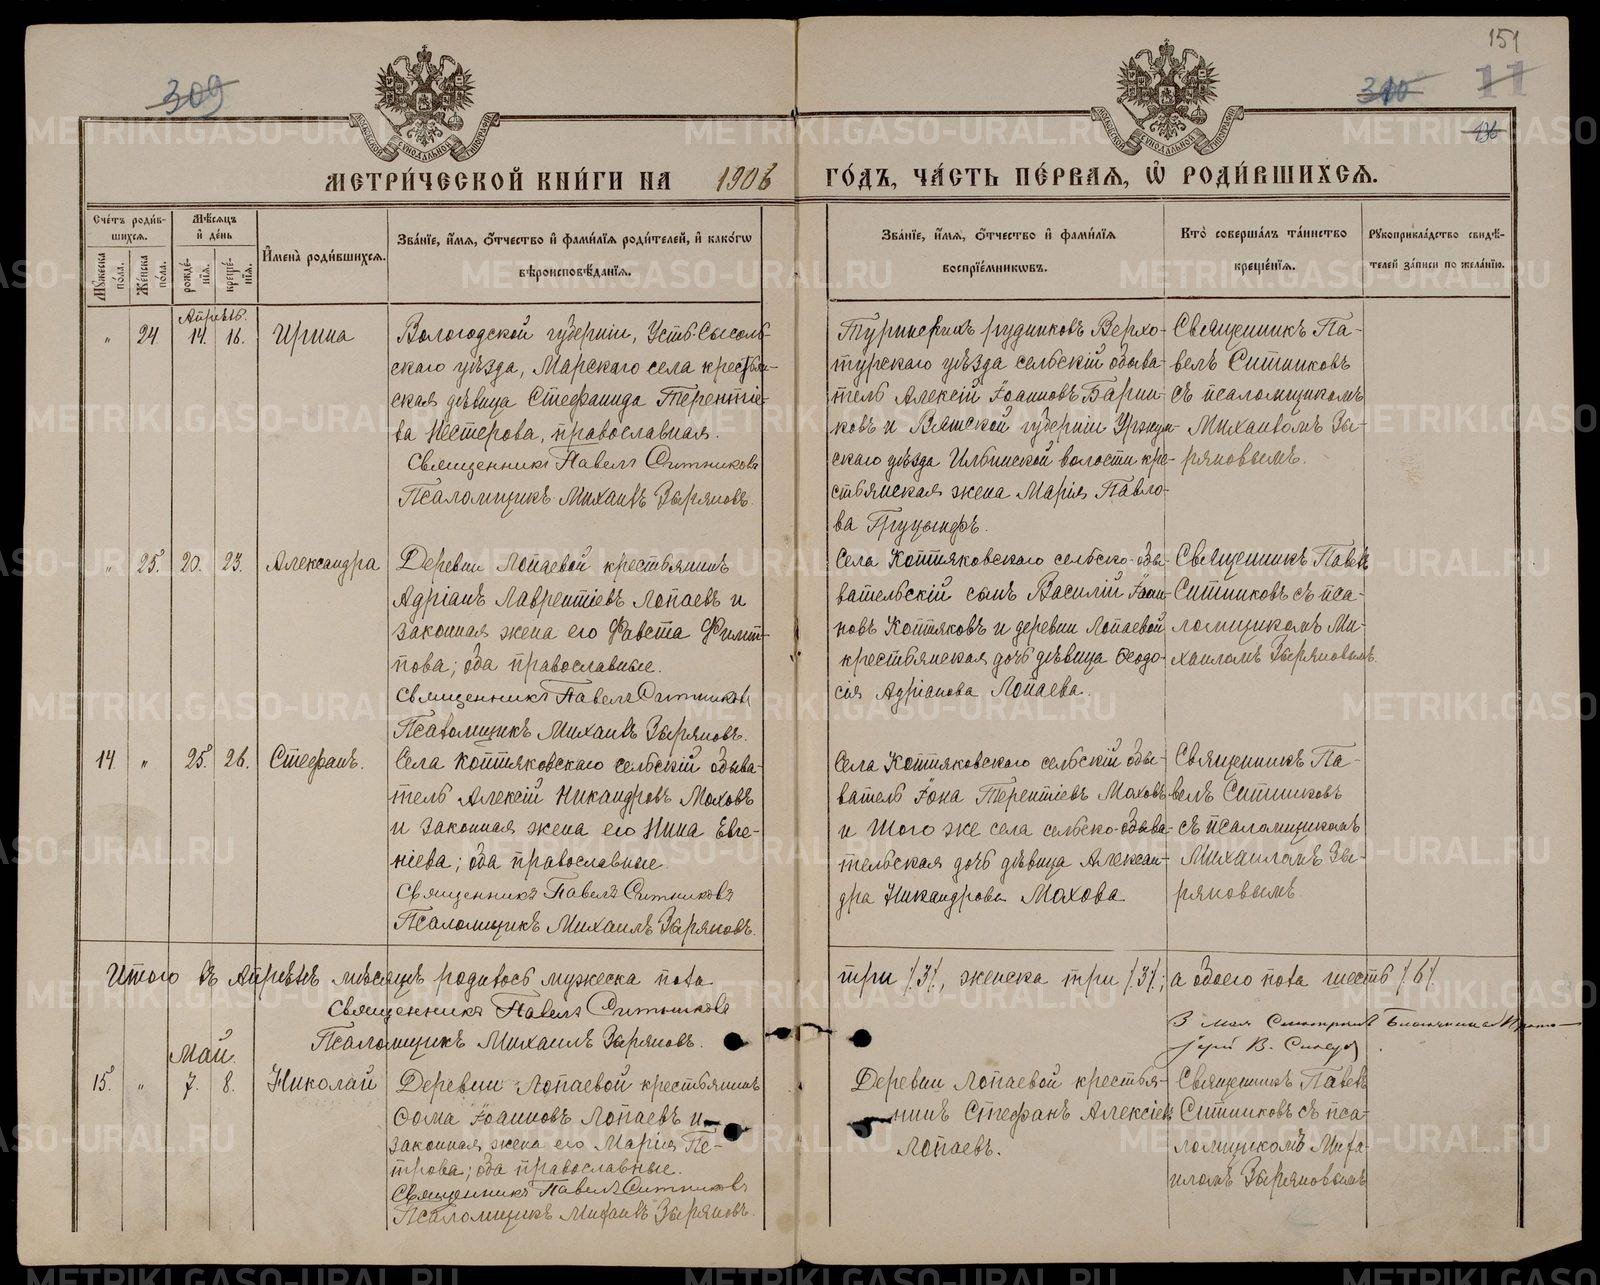 309
310
11
151
136
МЕТРИ́ЧЕСКОЙ КНИ́ГИ НА 1906
ГО́ДЪ, ЧА́СТЬ ПЕ́РВАЯ, Ѽ РОДИ́ВШИХСЯ.
Сче́тъ роди́в-
шихся.
Му́жеска по́ла.
Же́нска по́ла.
Мѣ́сяцъ и҆ де́нь
рожде́-
нїя.
креще́-
нїя.
И҆мена̀ роди́вшихся.
Зва́нїе, и҆́мя, ѻ҆́тчество и҆ фами́лїя роди́телей, и҆ како́гѡ
вѣроисповѣ́данїя.
Зва́нїе, и҆́мя, ѻ҆́тчество и҆ фами́лїя
воспрїе́мникѡвъ.
Кто̀ соверша́лъ та́инство
креще́нїя.
Рꙋкоприкла́дство свидѣ́-
телей за́писи по жела́нїю.
Апрѣль.
„ 24. 14. 16. Ирина
Вологодской губерніи, Усть-Сысоль-
скаго уѣзда, Марскаго села крестьян-
ская дѣвица Стефанида Терентіе-
ва Нестерова, православная.
Священникъ Павелъ Ситниковъ
Псаломщикъ Михаилъ Зыряновъ.
Туринскихъ рудниковъ Верхо-
турскаго уѣзда сельскій обыва-
тель Алексій Іоанновъ Барин-
ковъ и Вятской губерніи Уржум-
скаго уѣзда Илбинской волости кре-
стьянская жена Марія Павло-
ва
Священникъ Па-
велъ Ситниковъ
съ псаломщикомъ
Михаиломъ Зы-
ряновымъ.
„ 25. 20. 23. Александра
Деревни Лопаевой крестьянинъ
Адріанъ Лаврентіевъ Лопаевъ и
законная жена его Фавста Филип-
пова; оба православные.
Священникъ Павелъ Ситниковъ
Псаломщикъ Михаилъ Зыряновъ.
Села Коптяковскаго сельско-обы-
вательскій сынъ Василій Іоан-
новъ Коптяковъ и деревни Лопаевой
крестьянская дочь дѣвица Ѳеодо-
сія Адріанова Лопаева.
Священникъ Павелъ
Ситниковъ съ пса-
ломщикомъ Ми-
хаиломъ Зыряновымъ.
14. „ 25. 26. Стефанъ.
Села Коптяковскаго сельскій обыва-
тель Алексій Никандровъ Моховъ
и законная жена его Нина Евге-
ніева; оба православные.
Священникъ Павелъ Ситниковъ
Псаломщикъ Михаилъ Зыряновъ.
Села Коптяковскаго сельскій обы-
ватель Іона Терентіевъ Моховъ
и того же села сельско-обыва-
тельская дочь дѣвица Алексан-
дра Никандрова Мохова
Священникъ Па-
велъ Ситниковъ
съ псаломщикомъ
Михаиломъ Зы-
ряновымъ.
Итого въ Апрѣлѣ мѣсяцѣ родилось мужеска пола
три /3/, женска три /3/; а обоего пола шесть /6/
Священникъ Павелъ Ситниковъ
Псаломщикъ Михаилъ Зыряновъ.
3 мая Смотрѣлъ Благочинный Прото-
іерей В.
Май.
15. „ 7. 8. Николай
Деревни Лопаевой крестьянинъ
Ѳома Іоанновъ Лопаевъ и
законная жена его Марія Пе-
трова; оба православные.
Священникъ Павелъ Ситниковъ
Псаломщикъ Михаилъ Зыряновъ.
Деревни Лопаевой крестья-
нинъ Стефанъ Алексіевъ
Лопаевъ.
Священникъ Павелъ
Ситниковъ съ пса-
ломщикомъ Миха-
иломъ Зыряновымъ